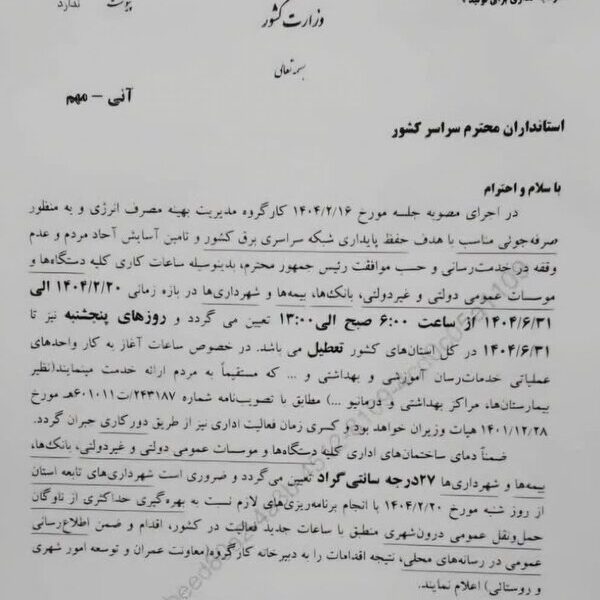 پیوست ندارد
وزارت کشور
بسمه تعالی
آنی - مهم
استانداران محترم سراسر کشور
با سلام و احترام
در اجرای مصوبه جلسه مورخ ۱۴۰۴/۲/۱۶ کارگروه مدیریت بهینه مصرف انرژی و به منظور
صرفه‌جوئی مناسب با هدف حفظ پایداری شبکه سراسری برق کشور و تامین آسایش آحاد مردم و عدم
وقفه در خدمت‌رسانی و حسب موافقت رئیس جمهور محترم، بدینوسیله ساعات کاری کلیه دستگاه‌ها و
موسسات عمومی دولتی و غیردولتی، بانک‌ها، بیمه‌ها و شهرداری‌ها در بازه زمانی ۱۴۰۴/۲/۲۰ الی
۱۴۰۴/۶/۳۱ از ساعت ۶:۰۰ صبح الی ۱۳:۰۰ تعیین می گردد و روزهای پنجشنبه نیز تا
۱۴۰۴/۶/۳۱ در کل استان‌های کشور تعطیل می باشد. در خصوص ساعات آغاز به کار واحدهای
عملیاتی خدمات‌رسان آموزشی و بهداشتی و ... که مستقیماً به مردم ارائه خدمت مینمایند(نظیر
بیمارستان‌ها، مراکز بهداشتی و درمانیو ...) مطابق با تصویب‌نامه شماره ۲۴۳۱۸۷/ت۶۰۱۰۱۱هـ مورخ
۱۴۰۱/۱۲/۲۸ هیات وزیران خواهد بود و کسری زمان فعالیت اداری نیز از طریق دورکاری جبران گردد.
ضمناً دمای ساختمان‌های اداری کلیه دستگاه‌ها و موسسات عمومی دولتی و غیردولتی، بانک‌ها،
بیمه‌ها و شهرداری‌ها ۲۷درجه سانتی‌گراد تعیین می‌گردد و ضروری است شهرداری‌های تابعه استان
از روز شنبه مورخ ۱۴۰۴/۲/۲۰ با انجام برنامه‌ریزی‌های لازم نسبت به بهره‌گیری حداکثری از ناوگان
حمل‌ونقل عمومی درون‌شهری منطبق با ساعات جدید فعالیت در کشور، اقدام و ضمن اطلاع‌رسانی
عمومی در رسانه‌های محلی، نتیجه اقدامات را به دبیرخانه کارگروه(معاونت عمران و توسعه امور شهری
و روستائی) اعلام نمایند.